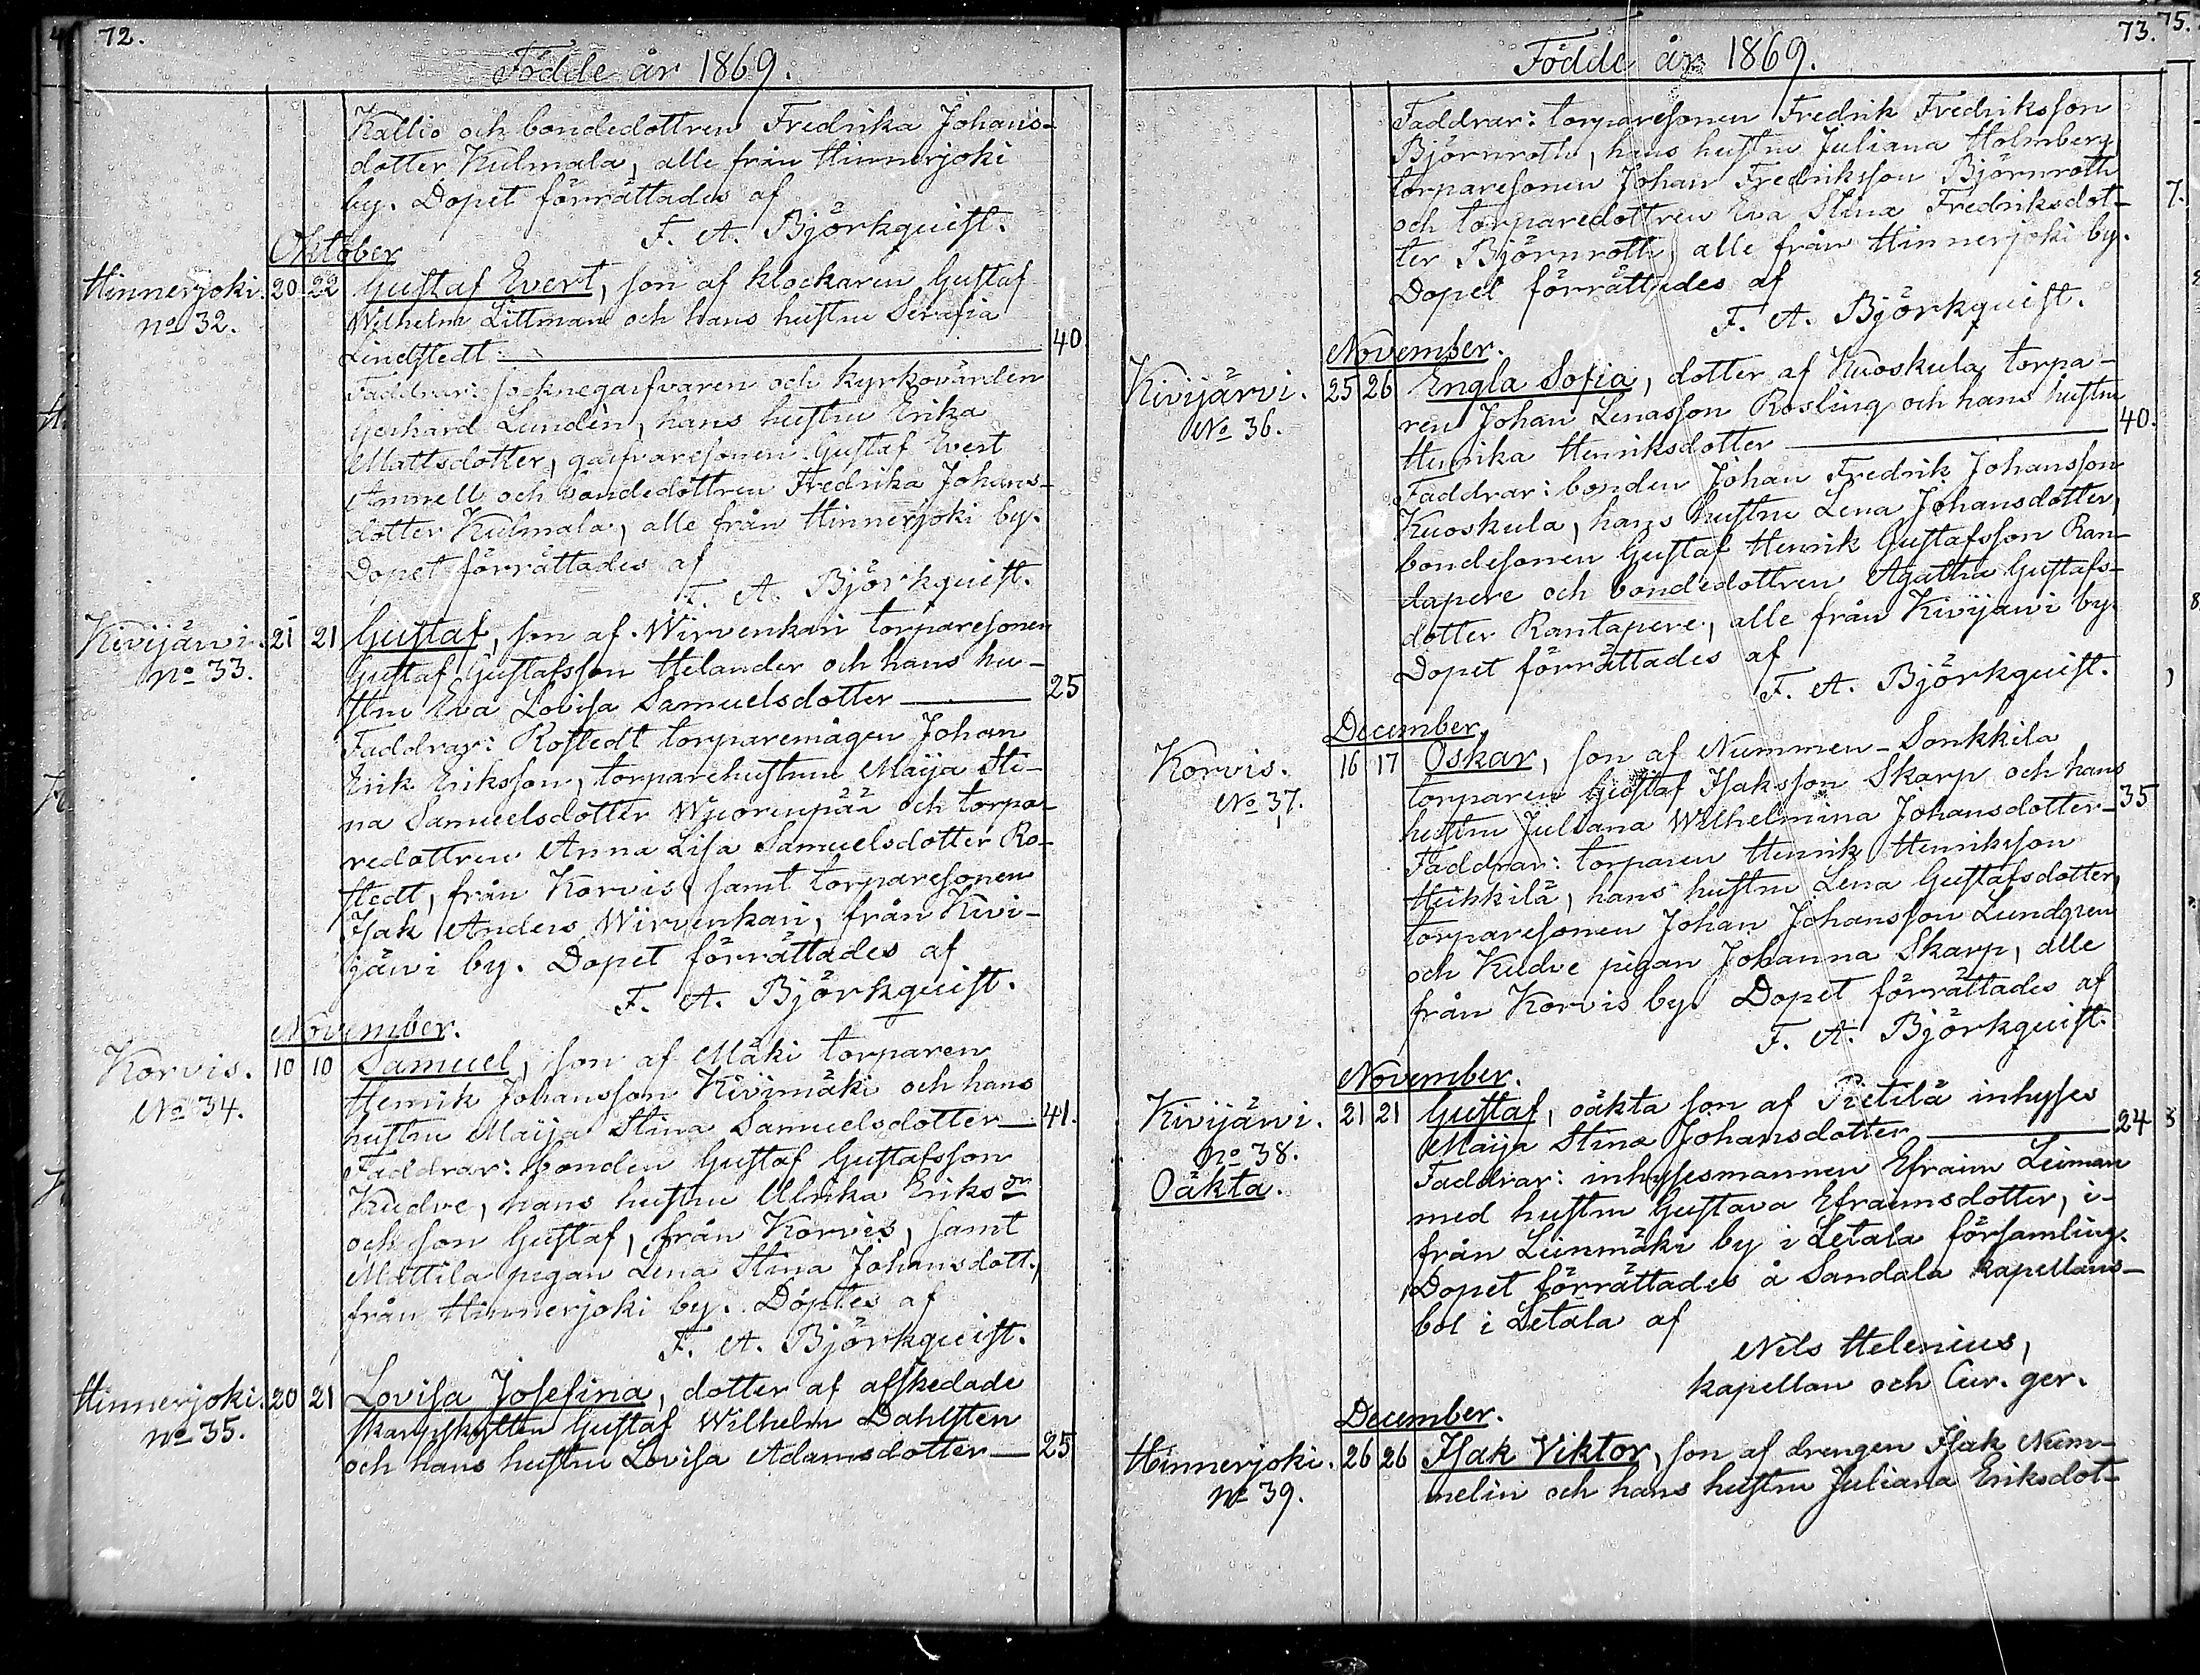 72.
Födde år 1869.
Kallio och bondedottren Fredrika Johans-
dotter Kulmala, alle från Hinnerjoki
by. Dopet förrättades af
F. A. Björkquist.
Oktober
Hinnerjoki. 20 22 Gustaf Evert, son af klockaren Gustaf
No 32. Wilhelm Littman och hans hustru Serafia
Lindstedt 40
Faddrar: socknegarfvaren och kyrkovärden
Gerhard Lundén, hans hustru Erika
Mattsdotter, garfvaresonen Gustaf Evert
Amnell och bondedottren Fredrika Johans-
dotter Kulmala, alle från Hinnerjoki by.
Dopet förrättades af
F. A. Björkquist.
Kivijärvi. 21 21 Gustaf, son af Wirvenkari torparesonen
No 33. Gustaf Gustafsson Helander och hans hu-
stru Eva Lovisa Samuelsdotter 25
Faddrar: Rostedt torparemågen Johan
Erik Eriksson, torparehustrun Maija Sti-
na Samuelsdotter Wuorenpää och torpa-
redottren Anna Lisa Samuelsdotter Ro-
stedt, från Korvis, samt torparesonen
Isak Anders Wirvenkari, från Kivi-
järvi by. Dopet förrättades af
F. A. Björkquist.
November.
Korvis. 10 10 Samuel, son af Mäki torparen
No 34. Henrik Johansson Kivimäki och hans
hustru Maija Stina Samuelsdotter 41.
Faddrar: bonden Gustaf Gustafsson
Kudve, hans hustru Ulrika Eriksdr
och son Gustaf, från Korvis, samt
Mattila pigan Lena Stina Johansdott.,
från Hinnerjoki by. Döptes af
F. A. Björkquist.
Hinnerjoki. 20 21 Lovisa Josefina, dotter af afskedade
No 35. skarpskytten Gustaf Wilhelm Dahlsten
och hans hustru Lovisa Adamsdotter 25
73.
75.
Födde år 1869.
Faddrar: torparesonen Fredrik Fredriksson
Björnroth, hans hustru Juliana Holmberg,
torparesonen Johan Fredriksson Björnroth
och torparedottren Eva Stina Fredriksdot-
ter Björnroth, alle från Hinnerjoki by.
Dopet förrättades af
F. A. Björkquist.
November.
Kivijärvi. 25 26 Engla Sofia, dotter af Kuoskula torpa-
No 36. ren Johan Lenasson Rosling och hans hustru
Henrika Henriksdotter 40.
Faddrar: bonden Johan Fredrik Johansson
Kuoskula, hans hustru Lena Johansdotter,
bondesonen Gustaf Henrik Gustafsson Ran-
tapere och bondedottren Agatha Gustafs-
dotter Rantapere, alle från Kivijärvi by.
Dopet förrättades af
F. A. Björkquist.
December.
Korvis. 16 17 Oskar, son af Nummen-Sonkkila
No 37. torparen Gustaf Isaksson Skarp och hans
hustru Juliana Wilhelmina Johansdotter 35
Faddrar: torparen Henrik Henriksson
Heikkilä, hans hustru Lena Gustafsdotter,
torparesonen Johan Johansson Lundgren
och Kudve pigan Johanna Skarp, alle
från Korvis by. Dopet förrättades af
F. A. Björkquist.
November.
Kivijärvi. 21 21 Gustaf, oäkta son af Pietilä inhyses
No 38. Maija Stina Johansdotter 24
Oäkta. Faddrar: inhysesmannen Efraim Leiman
med hustru Gustava Efraimsdotter, i-
från Leinmäki by i Letala församling.
Dopet förrättades å Sandala kapellans-
bol i Letala af
Nils Helenius,
kapellan och Cur. ger.
December.
Hinnerjoki. 26 26 Isak Viktor, son af drengen Isak Num-
No 39. melin och hans hustru Juliana Eriksdot-